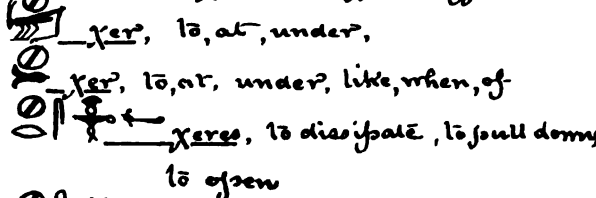 χer, to, at, under,
χer, to, at, under, like, when, of
χeres, to dissipate, to pull down,
to open